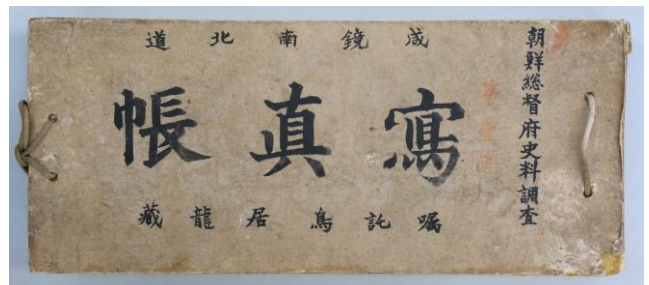 朝鮮総督府史料調査
咸鏡南北道
寫真帳
嘱託鳥居龍藏